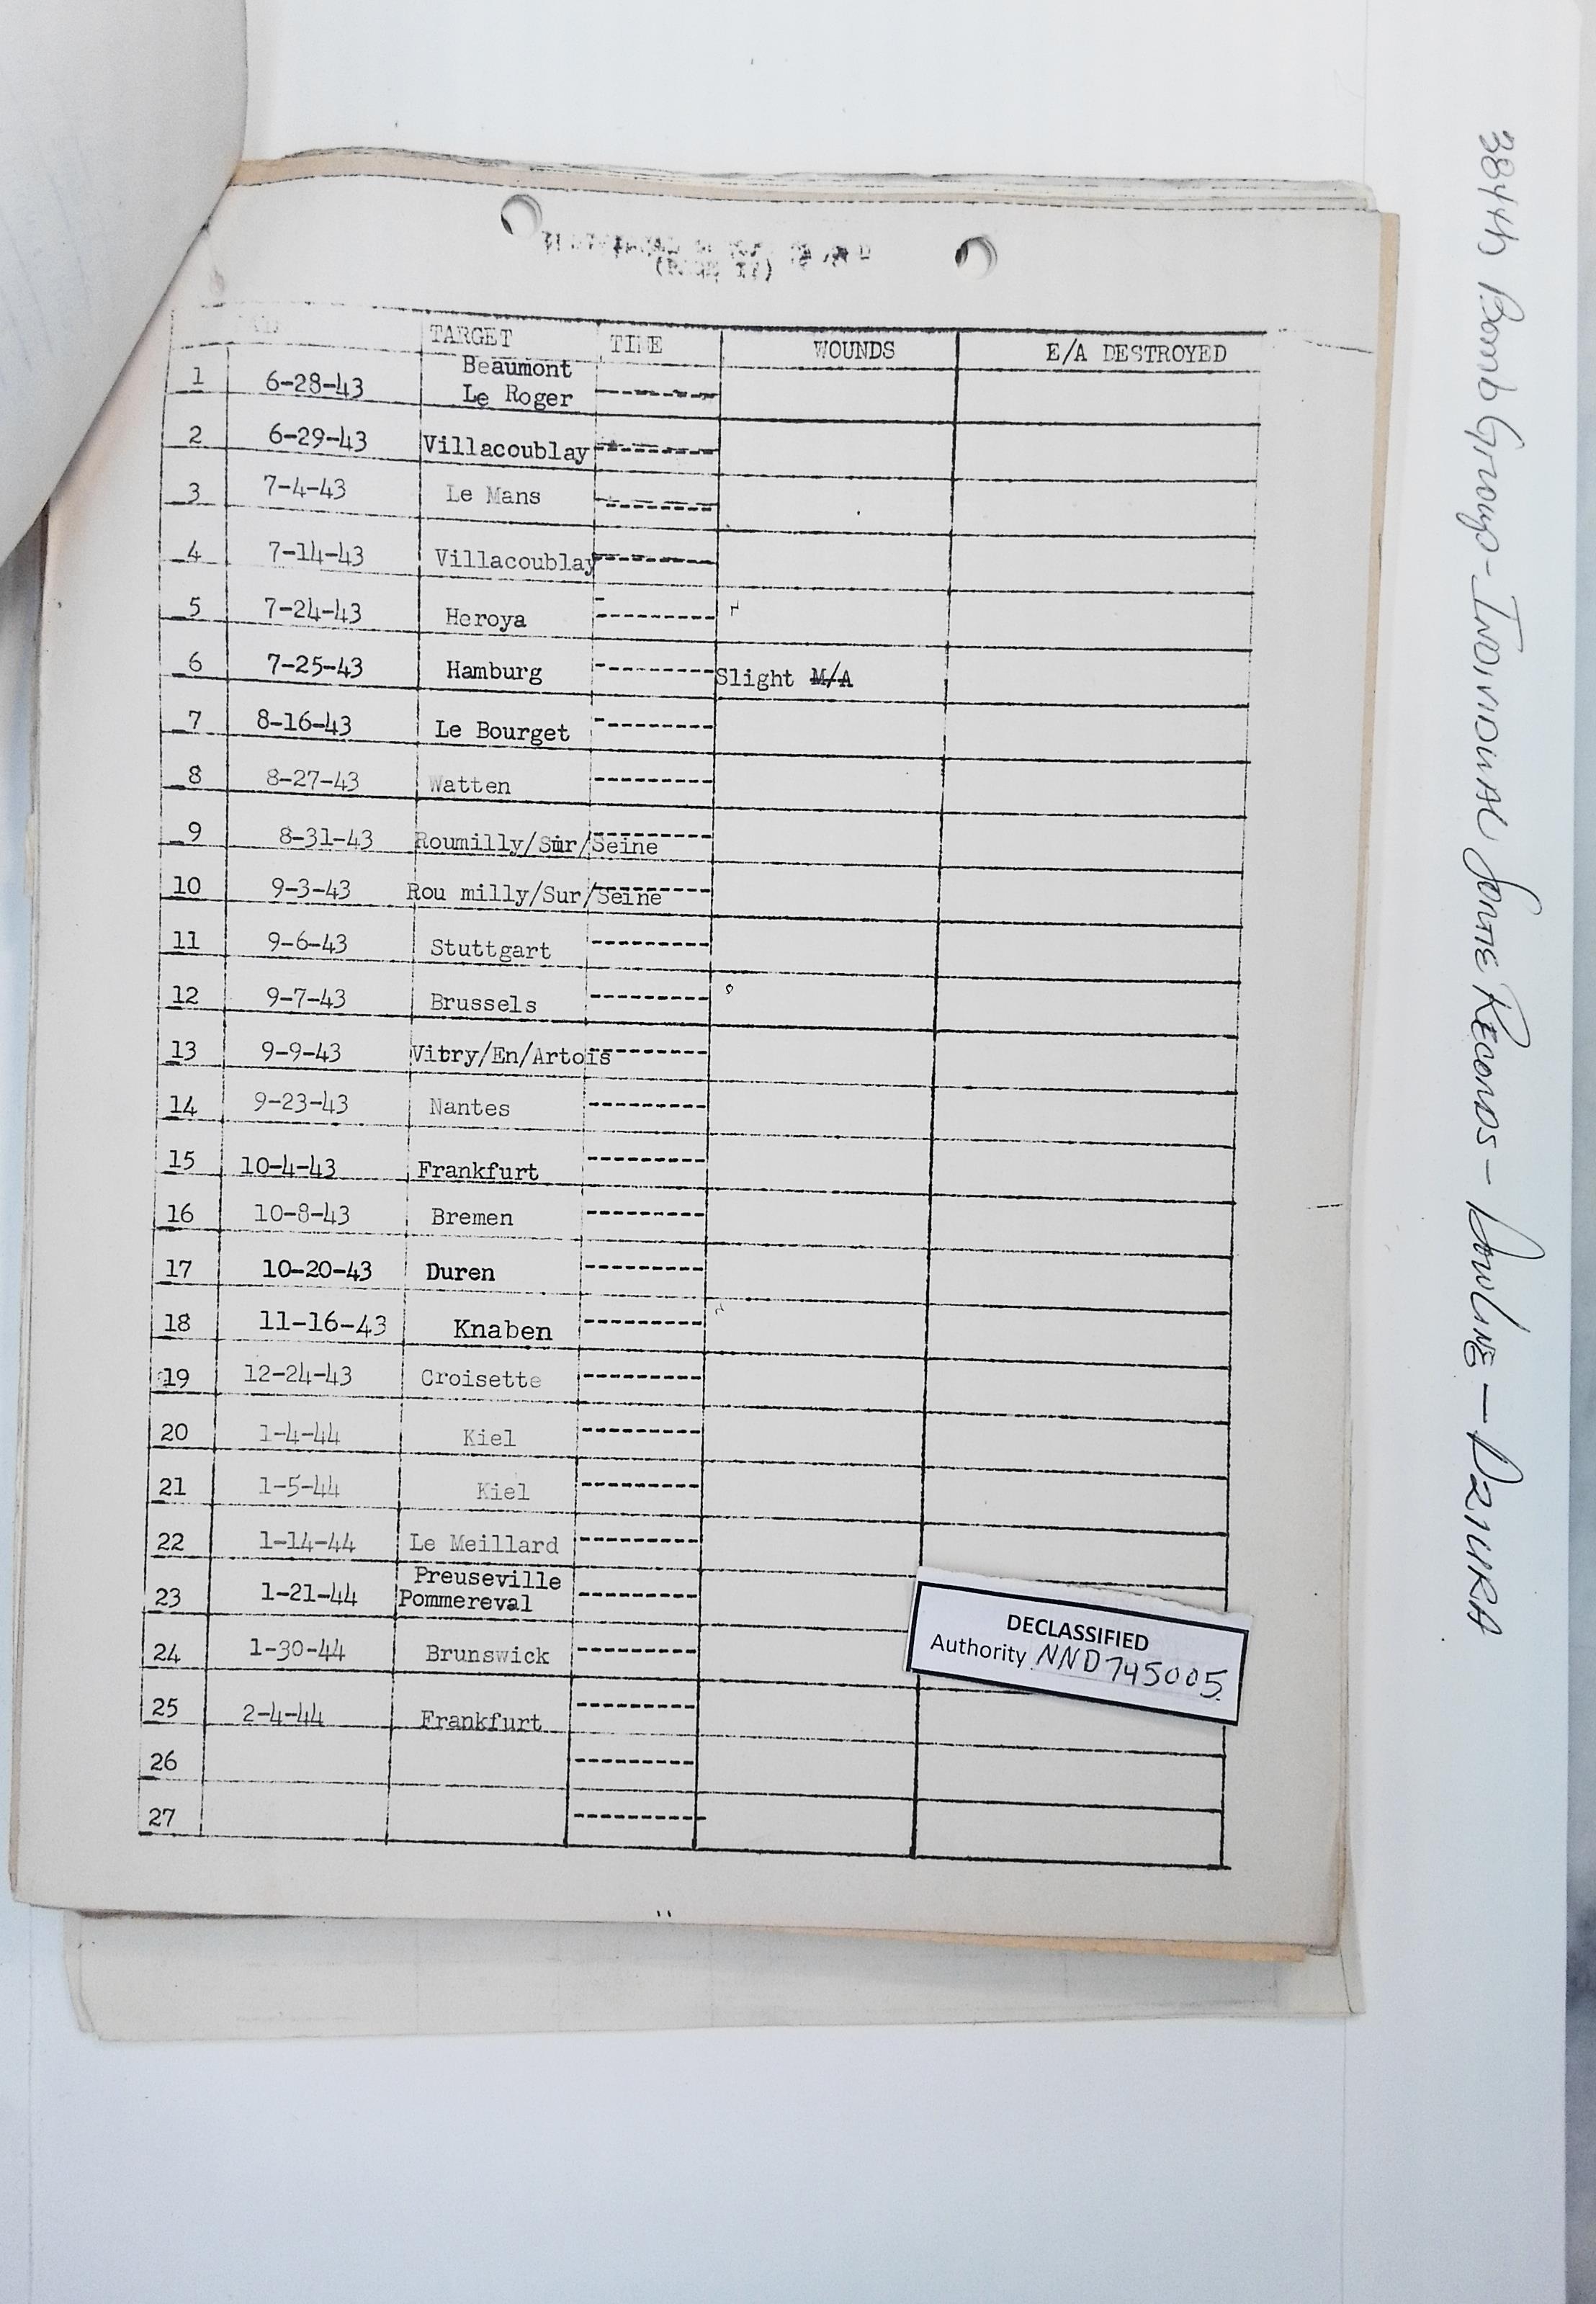 TARGET TIME WOUNDS E/A DESTROYED
1 6-28-43 Beaumont
Le Roger ---------
2 6-29-43 Villacoublay ---------
3 7-4-43 Le Mans ---------
4 7-14-43 Villacoublay ---------
5 7-24-43 Heroya ---------
6 7-25-43 Hamburg --------- Slight M/A
7 8-16-43 Le Bourget ---------
8 8-27-43 Watten ---------
9 8-31-43 Roumilly/Sur/Seine ---------
10 9-3-43 Rou milly/Sur/Seine ---------
11 9-6-43 Stuttgart ---------
12 9-7-43 Brussels ---------
13 9-9-43 Vitry/En/Artois ---------
14 9-23-43 Nantes ---------
15 10-4-43 Frankfurt ---------
16 10-8-43 Bremen ---------
17 10-20-43 Duren ---------
18 11-16-43 Knaben ---------
19 12-24-43 Croisette ---------
20 1-4-44 Kiel ---------
21 1-5-44 Kiel ---------
22 1-14-44 Le Meillard ---------
23 1-21-44 Preuseville
Pommereval ---------
24 1-30-44 Brunswick ---------
25 2-4-44 Frankfurt ---------
26 ---------
27 ---------
DECLASSIFIED
Authority NND745005
384th Bomb Group - INDIVIDUAL SORTIE RECORDS - DOWLING - DZIURA